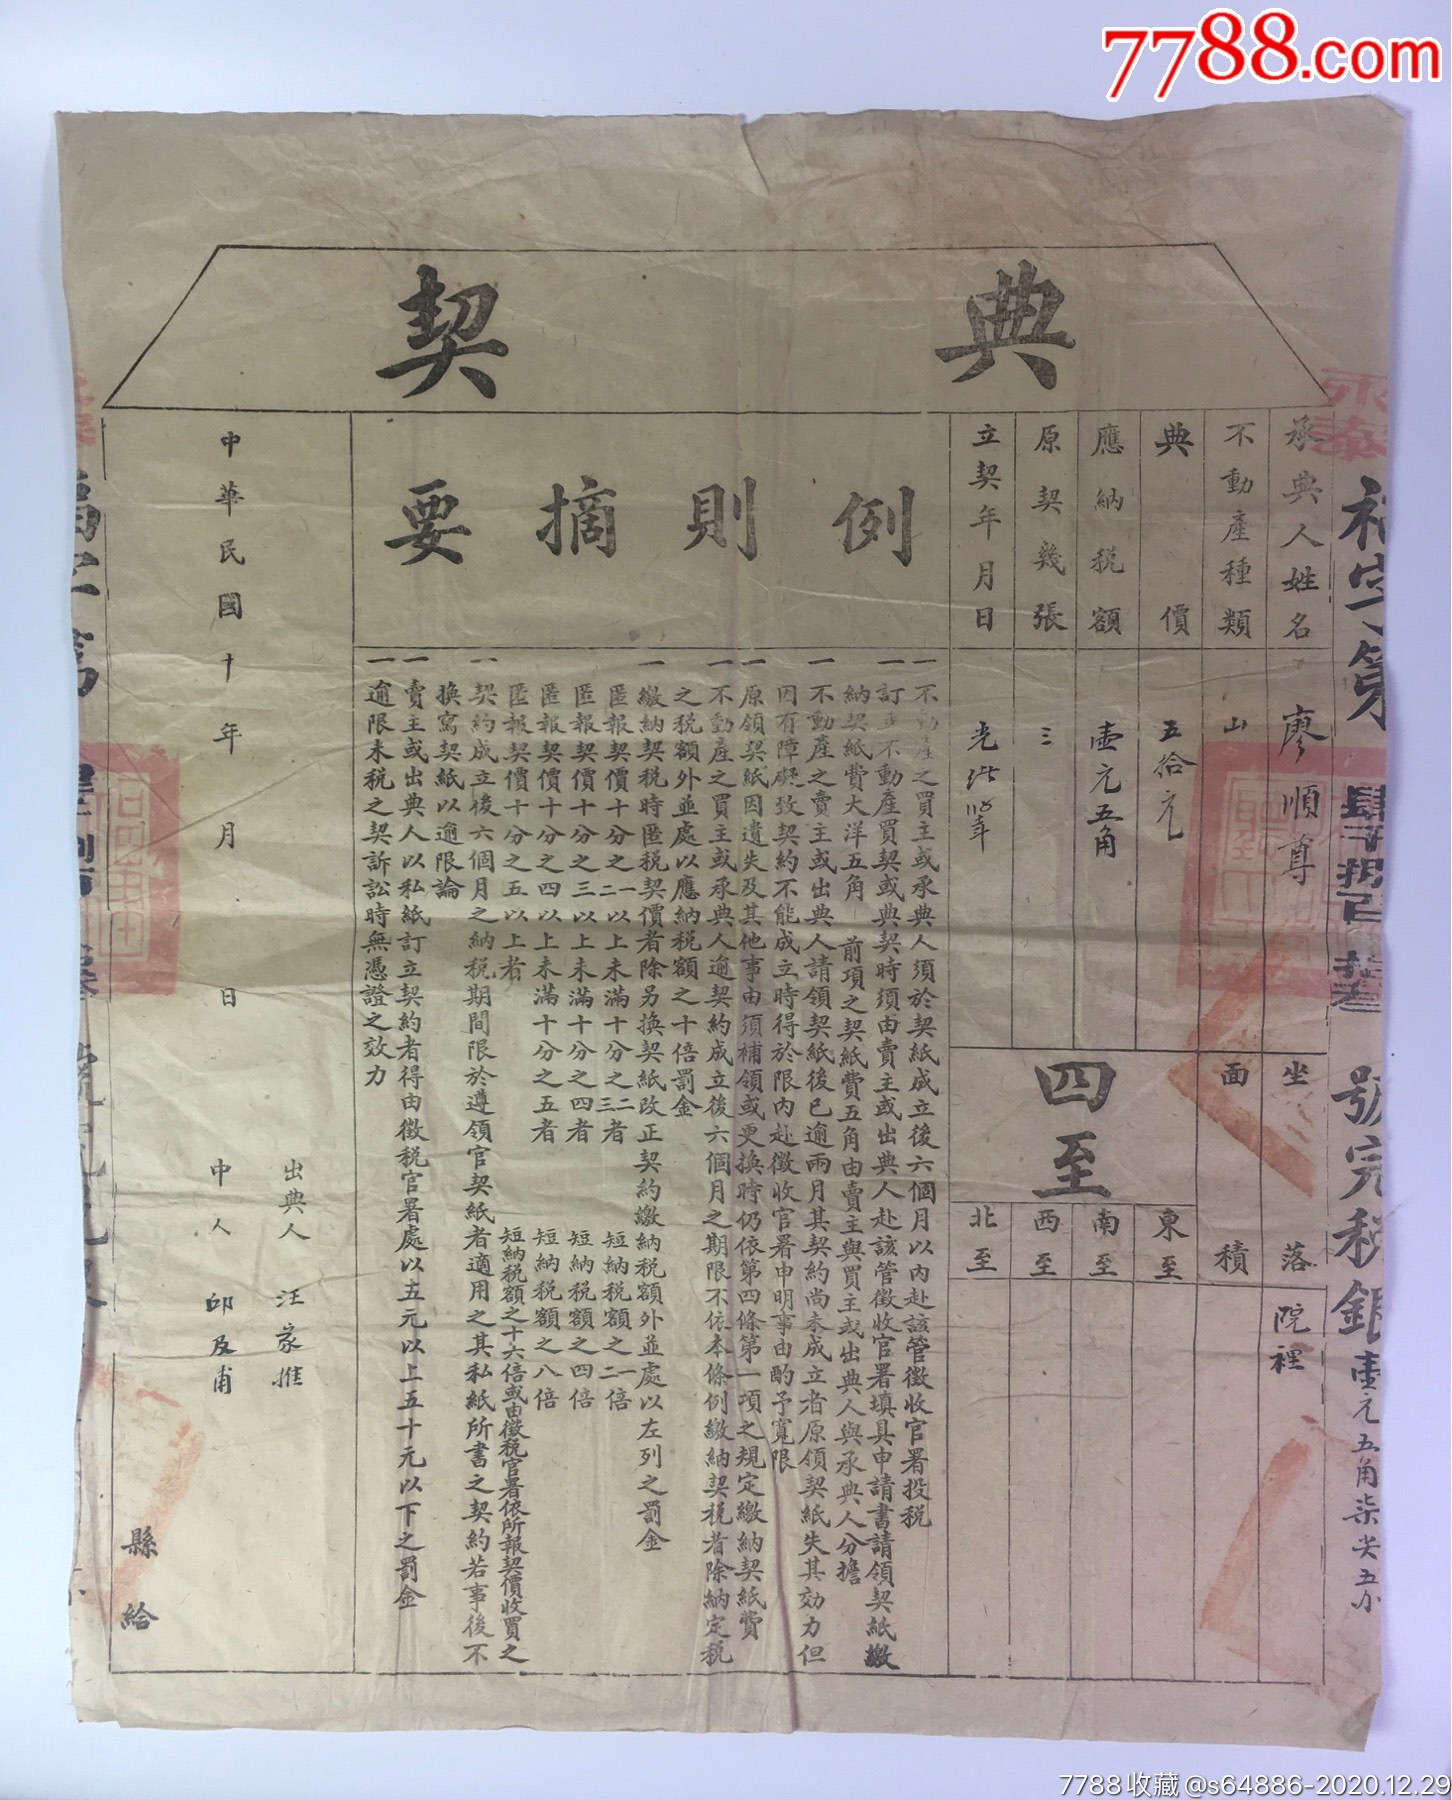 7788.com
典契
永泰
福字第肆千捌百 號完稅銀壹元五角柒尖五小
承典人姓名 廖順尊
坐落 院裡
不動產種類 山
面積
典價 五拾元
應納稅額 壹元五角
原契幾張 三
立契年月日 光緒
四至
東至
南至
西至
北至
例則摘要
一不動產之買主或承典人須於契紙成立後六個月以內赴該管徵收官署投稅
一訂立不動產買契或典契時須由賣主或出典人赴該管徵收官署填具申請書請領契紙繳
納契紙費大洋五角 前項之契紙費五角由賣主與買主或出典人與承典人分擔
一不動產之賣主或出典人請領契紙後已逾兩月其契約尚未成立者原領契紙失其効力但
因有障礙致契約不能成立時得於限內赴徵收官署申明事由酌予寬限
一原領契紙因遺失及其他事由須補領或更換時仍依第四條第一項之規定繳納契紙費
一不動產之買主或承典人逾契約成立後六個月之期限不依本條例繳納契稅者除納定稅
之稅額外並處以應納稅額之十倍罰金
一繳納契稅時匿稅契價者除另換契紙改正契約繳納稅額外並處以左列之罰金
匿報契價十分之一以上未滿十分之二者 短納稅額之一倍
匿報契價十分之二以上未滿十分之三者 短納稅額之二倍
匿報契價十分之三以上未滿十分之四者 短納稅額之四倍
匿報契價十分之四以上未滿十分之五者 短納稅額之八倍
匿報契價十分之五以上者 短納稅額之十六倍或由徵稅官署依所報契價收買之
一契約成立後六個月之納稅期間限於遵領官契紙者適用之其私紙所書之契約若事後不
換寫契紙以逾限論
一賣主或出典人以私紙訂立契約者得由徵稅官署處以五元以上五十元以下之罰金
一逾限未稅之契訴訟時無憑證之效力
中華民國十年 月 日
出典人 汪家推
中人 邱及甫
縣給
7788收藏@s64886-2020.12.29